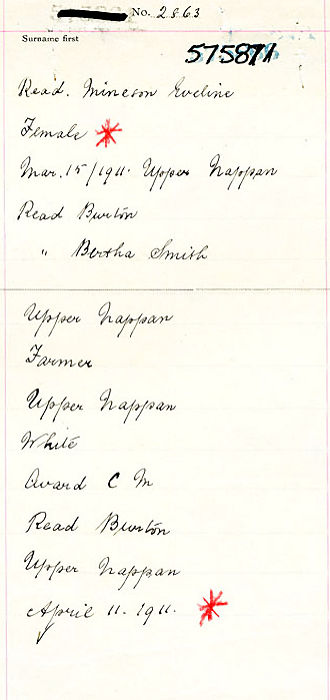 No. 2863
Surname first
575871
Read. Mineson Eveline
Female
Mar. 15/1911. Upper Nappan
Read Burton
" Bertha Smith
Upper Nappan
Farmer
Upper Nappan
White
Award C M
Read Burton
Upper Nappan
April 11. 1911.